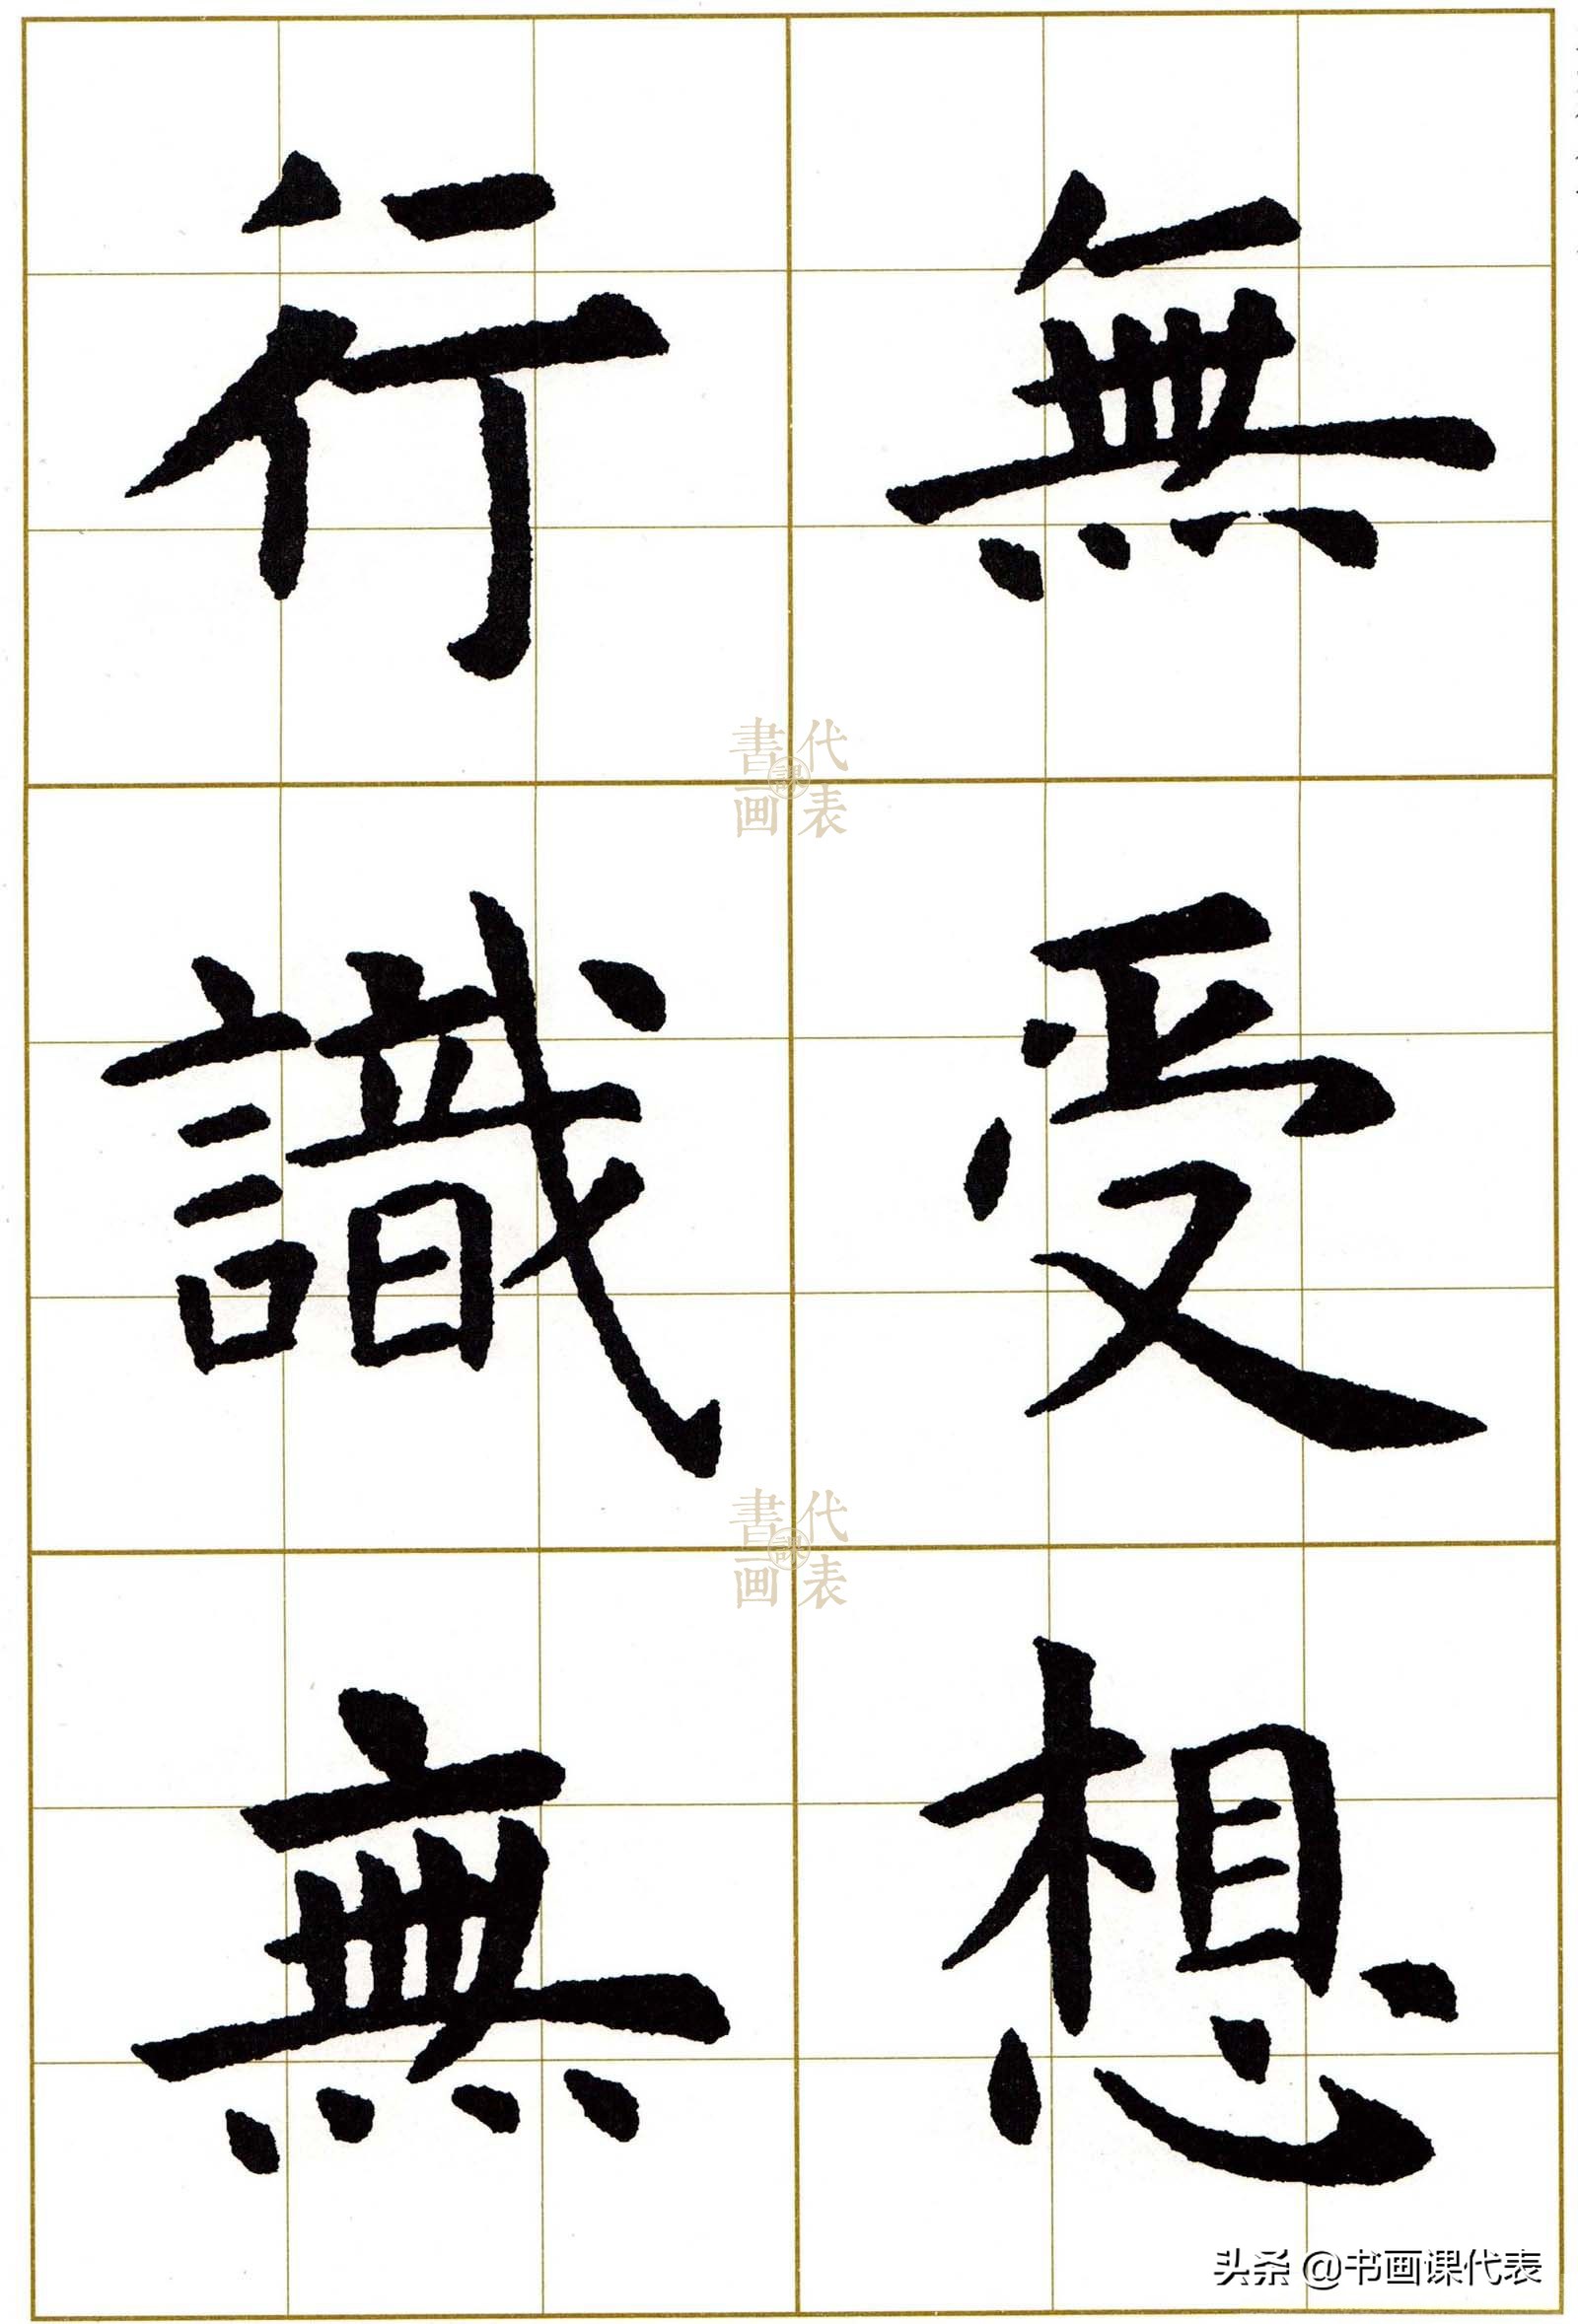 無受想
行識無
書画課代表
書画課代表
头条 @书画课代表